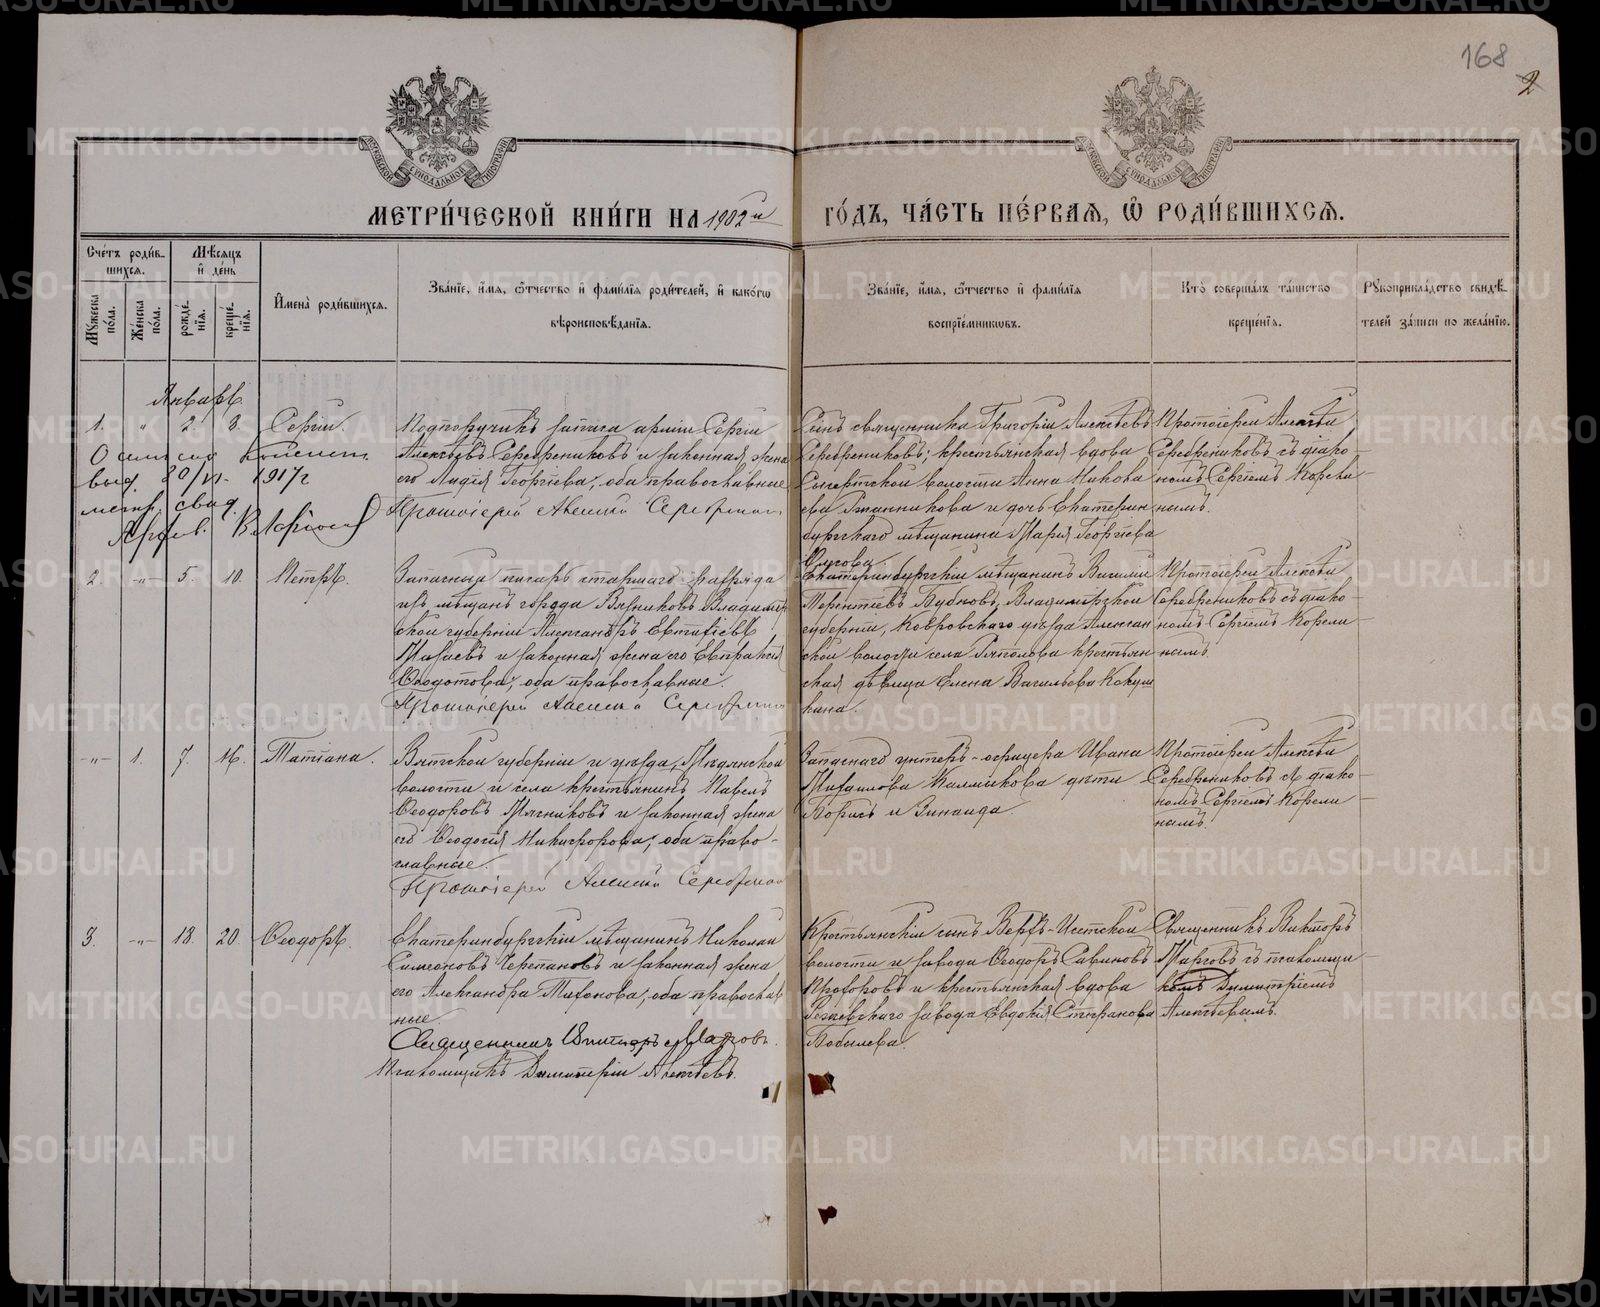 168
2
МОСКОВСКОЙ СѴНОДАЛЬНОЙ ТИПОГРАФІИ
МОСКОВСКОЙ СѴНОДАЛЬНОЙ ТИПОГРАФІИ
МЕТРИ́ЧЕСКОЙ КНИ́ГИ НА 1902й ГО́ДЪ, ЧА́СТЬ ПЕ́РВАѦ, Ѽ РОДИ́ВШИХСѦ.
Счéтъ роди́вшихсѧ.
Мѣ́сѧцъ и҆ де́нь
Мꙋ́жеска по́ла.
Же́нска по́ла.
рожде́нїѧ.
креще́нїѧ.
И҆мена̀ роди́вшихсѧ.
Зва́нїе, и҆́мѧ, ѻ҆́тчество и҆ фами́лїѧ роди́телей, и҆ како́гѡ вѣроисповѣ́данїѧ.
Зва́нїе, и҆́мѧ, ѻ҆́тчество и҆ фами́лїѧ воспрїе́мникѡвъ.
Кто̀ соверша́лъ та́инство креще́нїѧ.
Рꙋкоприкла́дство свидѣ́телей за́писи по жела́нїю.
Январь
1. " 2. 3. Сергій.
Подпоручикъ запаса арміи Сергій
Алексѣевъ Серебрениковъ и законная жена
его Лидія Георгіева, оба православные
Протоіерей Алексій Серебрен
Сынъ священника Григорій Алексѣевъ
Серебрениковъ; крестьянская вдова
волости Анна
и дочь Екатерин
бургскаго мѣщанина Марія Георгіева
Протоіерей Алексѣй
Серебрениковъ съ діако-
номъ Сергіемъ Корели-
нымъ.
выд. 20/VI 1917 г
метр. свид.
2. -"- 5. 10. Петръ.
Запасный писарь старшаго разряда
изъ мѣщанъ города Вязниковъ Владимір
ской губерніи Александръ Евтихіевъ
и законная жена его Евпраксія
Ѳеодотова, оба православные.
Протоіерей Алексій Серебрен
Екатеринбургскій мѣщанинъ Василій
Терентіевъ Зубковъ, Владимірской
губерніи, Ковровскаго уѣзда Алексин
ской волости села крестьян
ская дѣвица Елена Васильева Кокуш
кина.
Протоіерей Алексѣй
Серебрениковъ съ діако-
номъ Сергіемъ Корели-
нымъ.
-"- 1. 7. 16. Татіана.
Вятской губерніи и уѣзда, Мѣдянской
волости и села крестьянинъ Павелъ
Ѳеодоровъ Мячниковъ и законная жена
его Ѳеодосія Никифорова, оба право-
славные.
Протоіерей Алексій Серебрен
Запаснаго унтеръ-офицера Ивана
Михаилова Калмыкова дѣти
Борисъ и Зинаида.
Протоіерей Алексѣй
Серебрениковъ съ діако-
номъ Сергіемъ Корели-
нымъ.
3. -"- 18. 20. Ѳеодоръ.
Екатеринбургскій мѣщанинъ Николай
Симеоновъ Черепановъ и законная жена
его Александра Тихонова, оба православ
ные.
Священникъ Викторъ
Псаломщикъ Димитрій Алексѣевъ.
Крестьянскій сынъ Верхъ-Исетской
волости и завода Ѳеодоръ Савиновъ
Прохоровъ и крестьянская вдова
Режевскаго завода Евдокія Стефанова
Бобылева.
Священникъ Викторъ
съ псаломщи-
комъ Димитріемъ
Алексѣевымъ.
METRIKI.GASO-URAL.RU